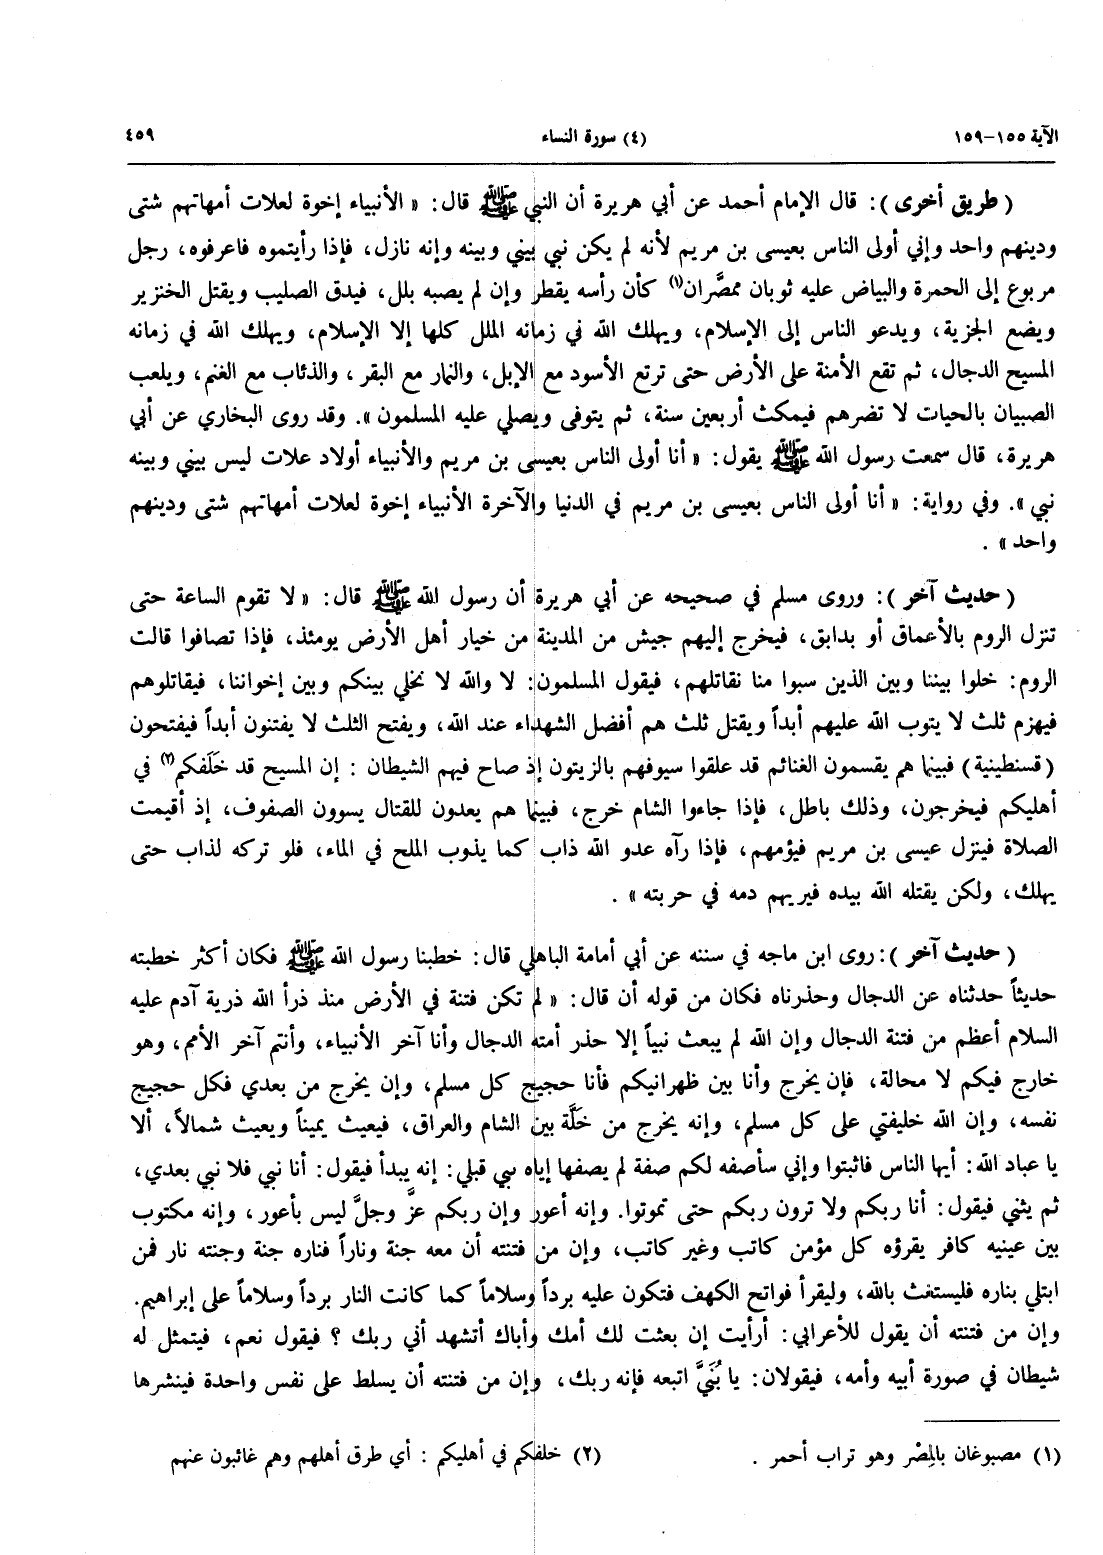 الآية ١٥٥-١٥٩ (٤) سورة النساء ٤٥٩
( طريق أخرى ): قال الإمام أحمد عن أبي هريرة أن النبي ﷺ قال: « الأنبياء إخوة لعلات أمهاتهم شتى
ودينهم واحد وإني أولى الناس بعيسى بن مريم لأنه لم يكن نبي بيني وبينه وإنه نازل، فإذا رأيتموه فاعرفوه، رجل
مربوع إلى الحمرة والبياض عليه ثوبان ممصَّران(١) كأن رأسه يقطر وإن لم يصبه بلل، فيدق الصليب ويقتل الخنزير
ويضع الجزية، ويدعو الناس إلى الإسلام، ويهلك الله في زمانه الملل كلها إلا الإسلام، ويهلك الله في زمانه
المسيح الدجال، ثم تقع الأمنة على الأرض حتى ترتع الأسود مع الإبل، والنمار مع البقر، والذئاب مع الغنم، ويلعب
الصبيان بالحيات لا تضرهم فيمكث أربعين سنة، ثم يتوفى ويصلي عليه المسلمون ». وقد روى البخاري عن أبي
هريرة، قال سمعت رسول الله ﷺ يقول: « أنا أولى الناس بعيسى بن مريم والأنبياء أولاد علات ليس بيني وبينه
نبي ». وفي رواية: « أنا أولى الناس بعيسى بن مريم في الدنيا والآخرة الأنبياء إخوة لعلات أمهاتهم شتى ودينهم
واحد » .
( حديث آخر ): وروى مسلم في صحيحه عن أبي هريرة أن رسول الله ﷺ قال: « لا تقوم الساعة حتى
تنزل الروم بالأعماق أو بدابق، فيخرج إليهم جيش من المدينة من خيار أهل الأرض يومئذ، فإذا تصافوا قالت
الروم: خلوا بيننا وبين الذين سبوا منا نقاتلهم، فيقول المسلمون: لا والله لا نخلي بينكم وبين إخواننا، فيقاتلوهم
فيهزم ثلث لا يتوب الله عليهم أبداً ويقتل ثلث هم أفضل الشهداء عند الله، ويفتح الثلث لا يفتنون أبداً فيفتحون
( قسنطينية ) فبينما هم يقسمون الغنائم قد علقوا سيوفهم بالزيتون إذ صاح فيهم الشيطان : إن المسيح قد خَلَفكم(٢) في
أهليكم فيخرجون، وذلك باطل، فإذا جاءوا الشام خرج، فبينما هم يعدون للقتال يسوون الصفوف، إذ أقيمت
الصلاة فينزل عيسى بن مريم فيؤمهم، فإذا رآه عدو الله ذاب كما يذوب الملح في الماء، فلو تركه لذاب حتى
يهلك، ولكن يقتله الله بيده فيريهم دمه في حربته » .
( حديث آخر ): روى ابن ماجه في سننه عن أبي أمامة الباهلي قال: خطبنا رسول الله ﷺ فكان أكثر خطبته
حديثاً حدثناه عن الدجال وحذرناه فكان من قوله أن قال: « لم تكن فتنة في الأرض منذ ذرأ الله ذرية آدم عليه
السلام أعظم من فتنة الدجال وإن الله لم يبعث نبياً إلا حذر أمته الدجال وأنا آخر الأنبياء، وأنتم آخر الأمم، وهو
خارج فيكم لا محالة، فإن يخرج وأنا بين ظهرانيكم فأنا حجيج كل مسلم، وإن يخرج من بعدي فكل حجيج
نفسه، وإن الله خليفتي على كل مسلم، وإنه يخرج من خَلَّة بين الشام والعراق، فيعيث يميناً ويعيث شمالاً، ألا
يا عباد الله: أيها الناس فاثبتوا وإني سأصفه لكم صفة لم يصفها إياه نبي قبلي: إنه يبدأ فيقول: أنا نبي فلا نبي بعدي،
ثم يثني فيقول: أنا ربكم ولا ترون ربكم حتى تموتوا. وإنه أعور وإن ربكم عزَّ وجلَّ ليس بأعور، وإنه مكتوب
بين عينيه كافر يقرؤه كل مؤمن كاتب وغير كاتب، وإن من فتنته أن معه جنة وناراً فناره جنة وجنته نار فمن
ابتلي بناره فليستغث بالله، وليقرأ فواتح الكهف فتكون عليه برداً وسلاماً كما كانت النار برداً وسلاماً على إبراهيم.
وإن من فتنته أن يقول للأعرابي: أرأيت إن بعثت لك أمك وأباك أتشهد أني ربك ؟ فيقول نعم، فيتمثل له
شيطان في صورة أبيه وأمه، فيقولان: يا بُنَيَّ اتبعه فإنه ربك، وإن من فتنته أن يسلط على نفس واحدة فينشرها
(١) مصبوغان بالمِصْر وهو تراب أحمر . (٢) خلفكم في أهليكم : أي طرق أهلهم وهم غائبون عنهم